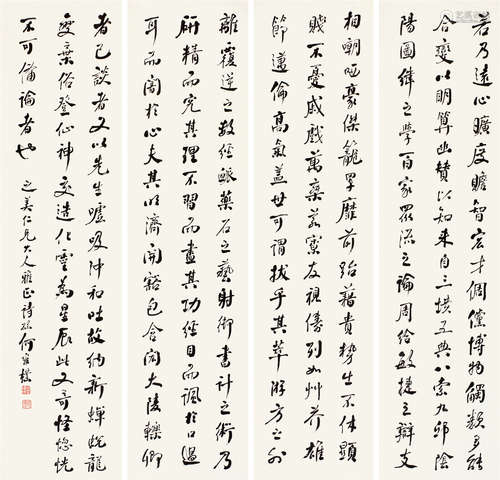 若乃遠心曠度贍智宏才倜儻博物觸類多能
合變以明算幽贊以知來自三墳五典八索九邱陰
陽圖緯之學百家眾流之論周給敏捷之辯支
相嘲哂豪傑籠罩靡前跆藉貴勢生不休顯
賤不憂戚戲萬乘若寮友視儔列如艸芥雄
節邁倫高氣蓋世可謂拔乎其萃游方之外
離覆逆之數經脈藥石之藝射御書計之術乃
研精而究其理不習而盡其功經目而諷於口過
耳而闇於心夫其明濟開豁包含閎大陵轢卿
者已談者又以先生噓吸沖和吐故納新蟬蛻龍
變棄俗登仙神交造化靈為星辰此又奇怪惚恍
不可備論者也 之美仁兄大人雅正詩孫何維樸